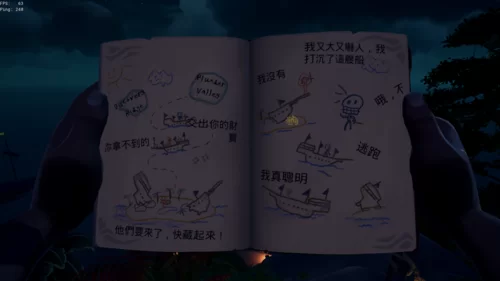 FPS: 63
Ping: 248
Plunder
Valley
交出你的財
寶
你拿不到的
他們要來了，快藏起來！
我又大又嚇人，我
打沉了這艘船
我沒有
哦，不
逃跑
我真聰明